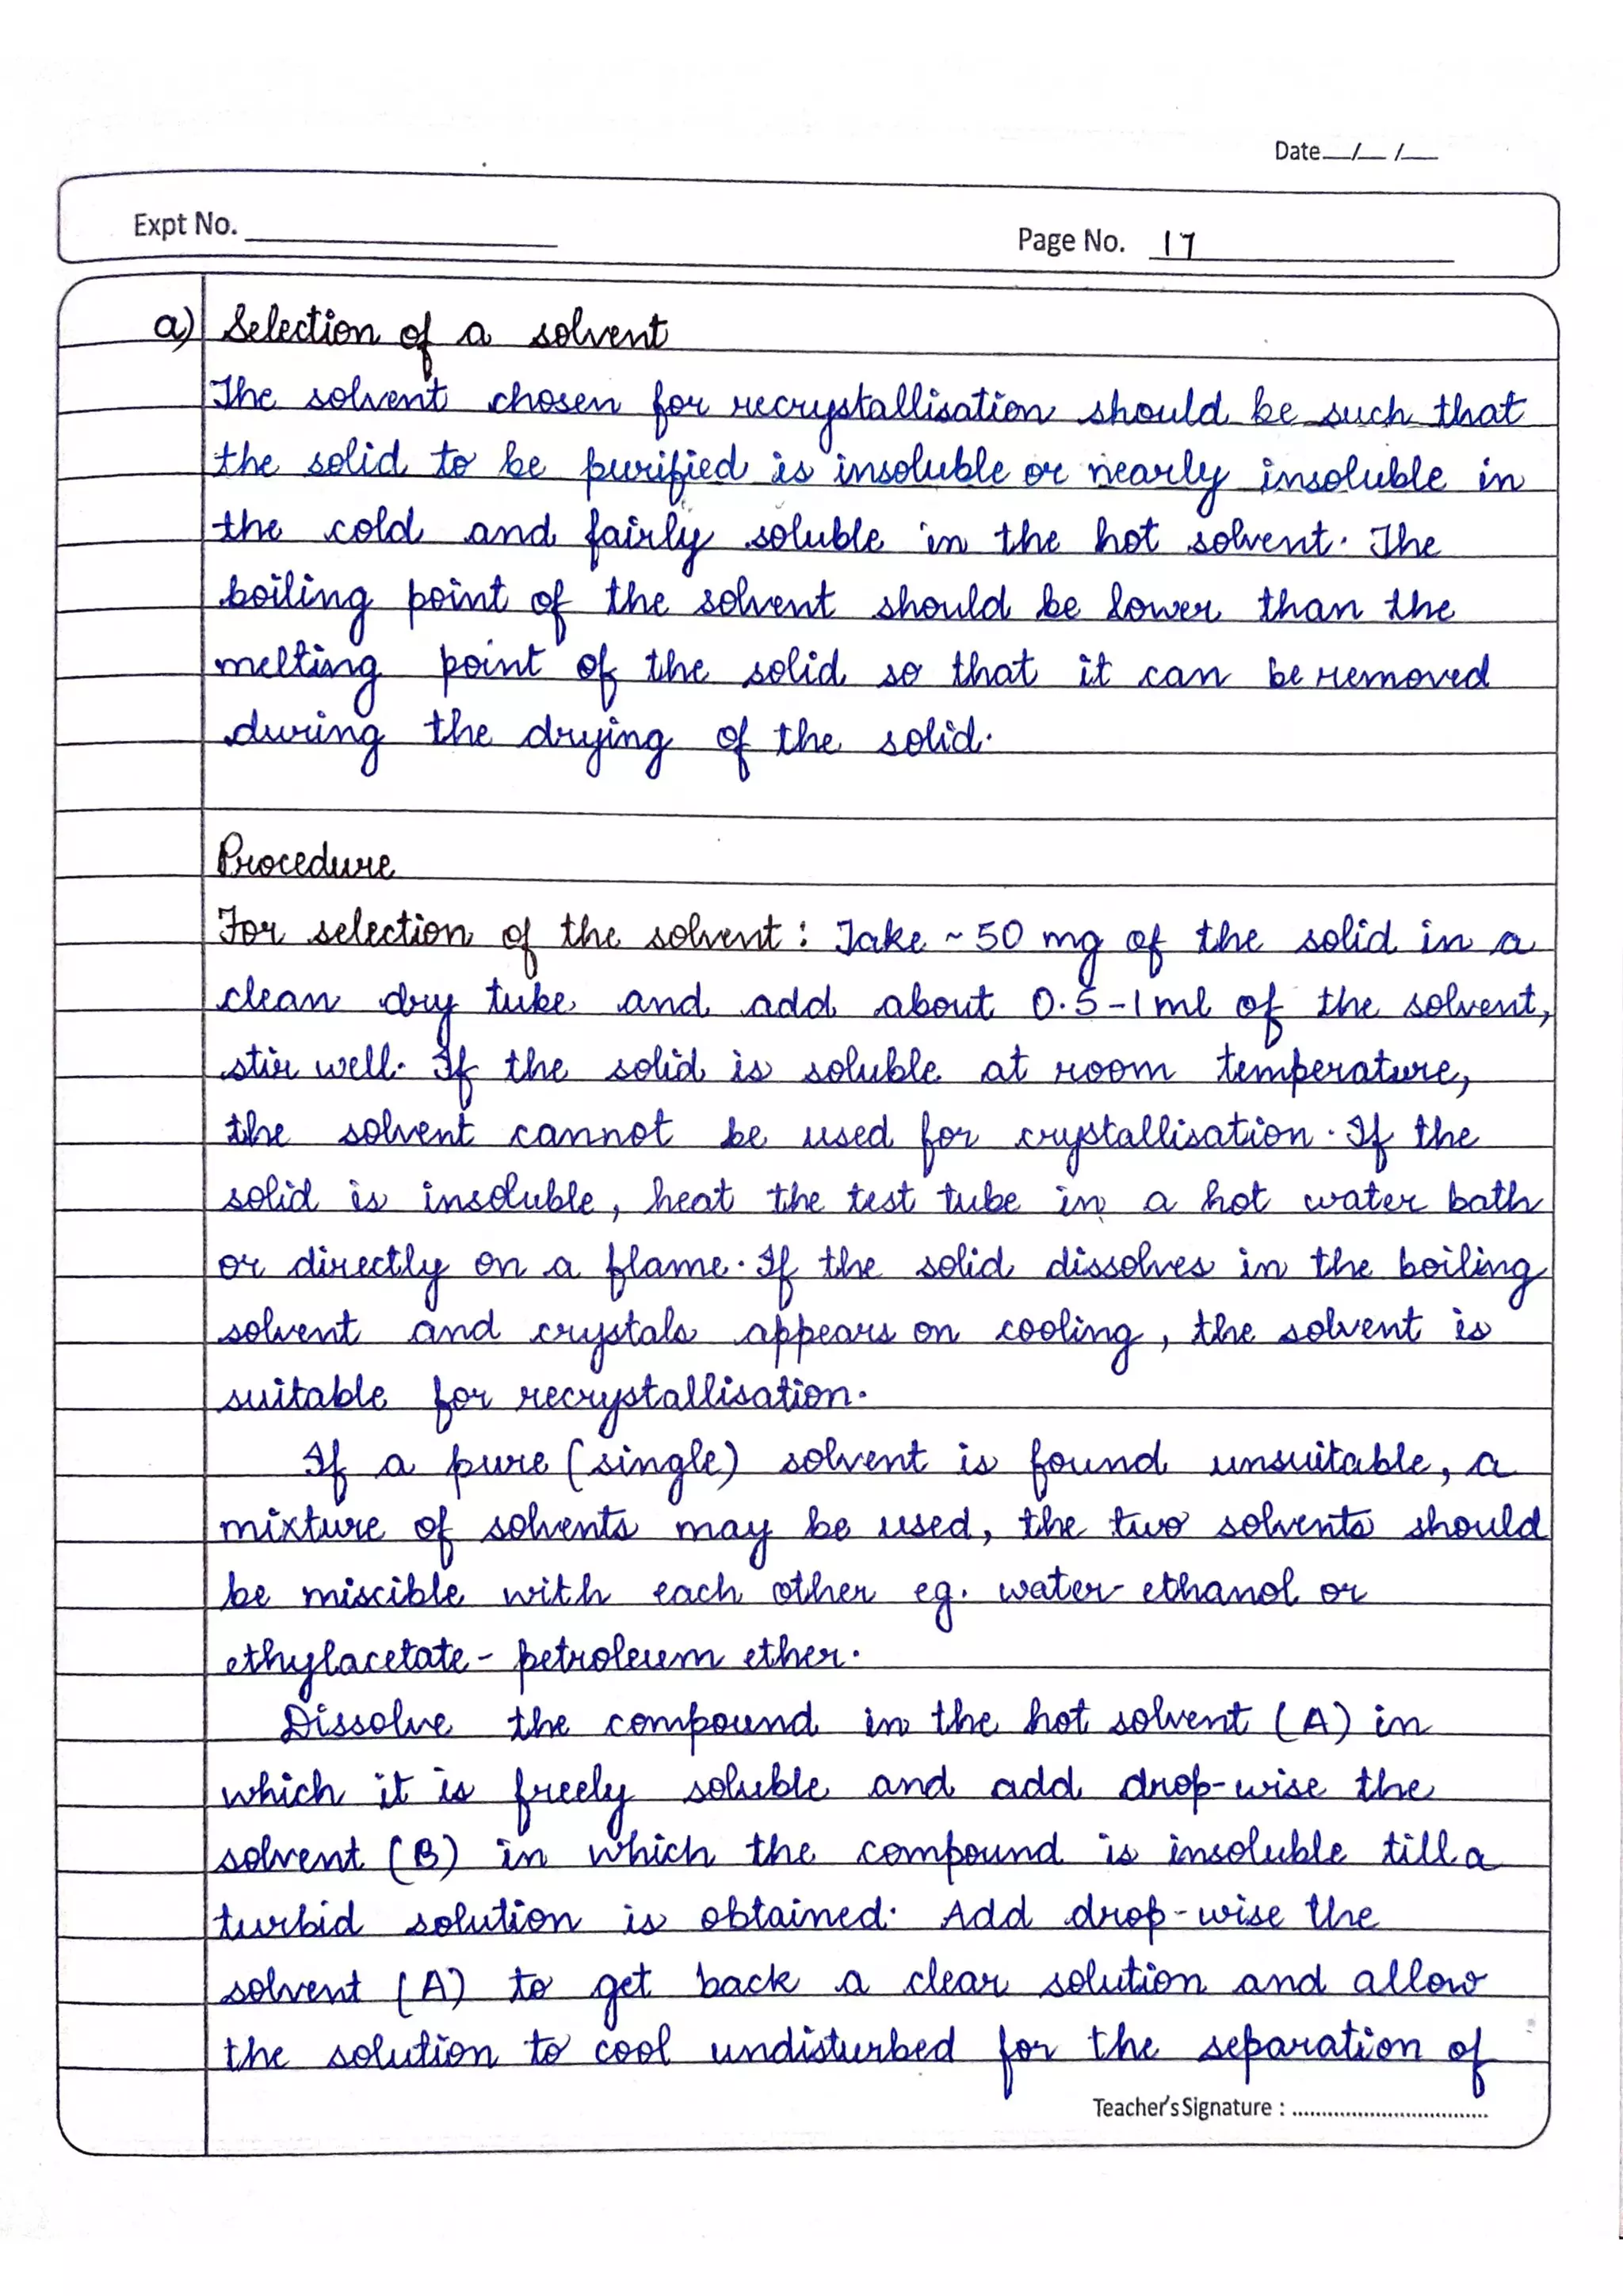 Date__/__/__
Expt No.
Page No. 17
a) Selection of a solvent
The solvent chosen for recrystallisation should be such that
the solid to be purified is insoluble or nearly insoluble in
the cold and fairly soluble in the hot solvent. The
boiling point of the solvent should be lower than the
melting point of the solid so that it can be removed
during the drying of the solid.
Procedure
For selection of the solvent : Take ~ 50 mg of the solid in a
clean dry tube and add about 0.5-1 ml of the solvent,
stir well. If the solid is soluble at room temperature,
the solvent cannot be used for crystallisation. If the
solid is insoluble, heat the test tube in a hot water bath
or directly on a flame. If the solid dissolves in the boiling
solvent and crystals appears on cooling, the solvent is
suitable for recrystallisation.
If a pure (single) solvent is found unsuitable, a
mixture of solvents may be used, the two solvents should
be miscible with each other eg. water-ethanol or
ethylacetate - petroleum ether.
Dissolve the compound in the hot solvent (A) in
which it is freely soluble and add drop-wise the
solvent (B) in which the compound is insoluble till a
turbid solution is obtained. Add drop-wise the
solvent (A) to get back a clear solution and allow
the solution to cool undisturbed for the separation of
Teacher's Signature : ..............................